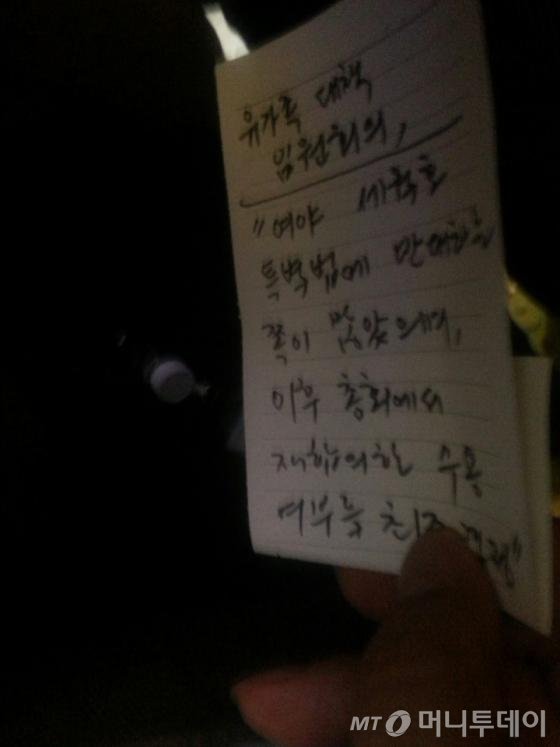 유가족 대책
임원회의,
"여야 세월호
특별법에 반대하는
쪽이 많았으며,
이후 총회에서
재합의안 수용
여부를 최종
MT 머니투데이